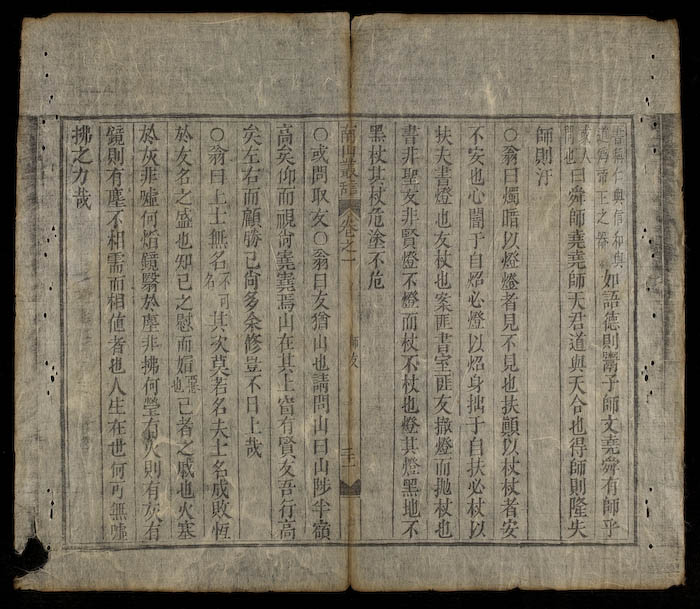 書稱仁與信和與
道爲帝王之器 如語德則鬻子師文堯舜有師乎
或人
問也 曰舜師堯堯師天君道與天合也得師則隆失
師則汙
○翁曰燭暗以燈燈者見不見也扶顛以杖杖者安
不安也心闇于自炤必燈以炤身拙于自扶必杖以
扶夫書燈也友杖也案匪書室匪友撤燈而拋杖也
書非聖友非賢燈不燈而杖不杖也燈其燈黑地不
黑杖其杖危塗不危
卷之一
師友
○或問取友○翁曰友猶山也請問山曰山陟半嶺
高矣仰而視尚嶤嶤焉山在其上甯有賢友吾行高
矣左右而顧勝己尚多余修豈不日上哉
○翁曰上士無名不可
名 其次莫若名夫士名成敗恆
於友名之盛也知己之慰而媢惡
也 己者之戚也火塞
於灰非噓何焰鏡翳於塵非拂何瑩有火則有灰有
鏡則有塵不相需而相値者也人生在世何可無噓
拂之力哉